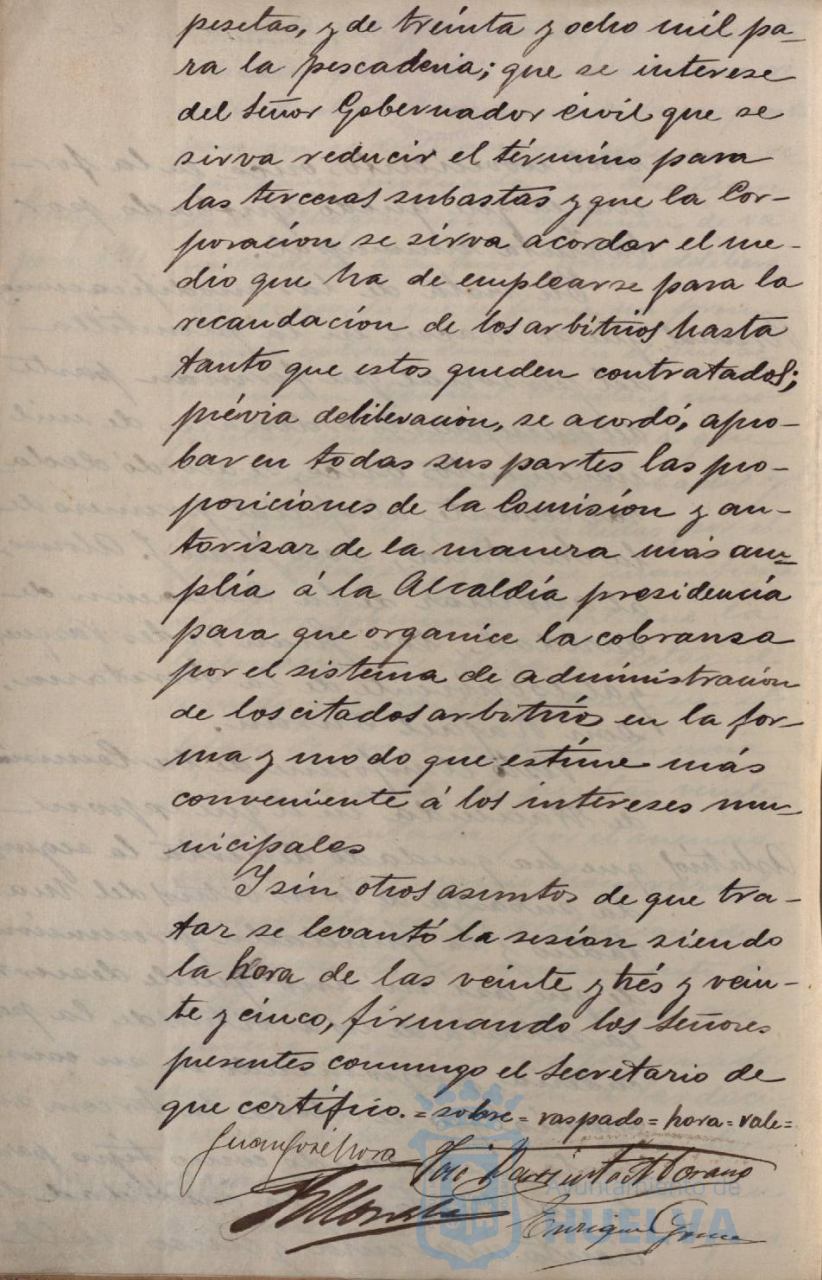 pesetas, y de treinta y ocho mil pa-
ra la pescaderia; que se interese
del Señor Gobernador civil que se
sirva reducir el término para
las terceras subastas y que la Cor-
poración se sirva acordar el me-
dio que ha de emplearse para la
recaudación de los arbitrios hasta
tanto que estos queden contratados;
prévia deliberación, se acordó, apro-
bar en todas sus partes las pro-
posiciones de la Comisión y au-
torisar de la manera más am-
plia á la Alcaldía presidencia
para que organice la cobransa
por el sistema de administración
de los citados arbitrios en la for-
ma y modo que estime más
conveniente á los intereses mu-
nicipales
Y sin otros asuntos de que tra-
tar se levantó la sesion siendo
la hora de las veinte y trés y vein-
te y cinco, firmando los Señores
presentes conmigo el Secretario de
que certifico.=sobre=raspado=hora=vale=
Juan José Mora
José
Enrique
Ayuntamiento de
HUELVA